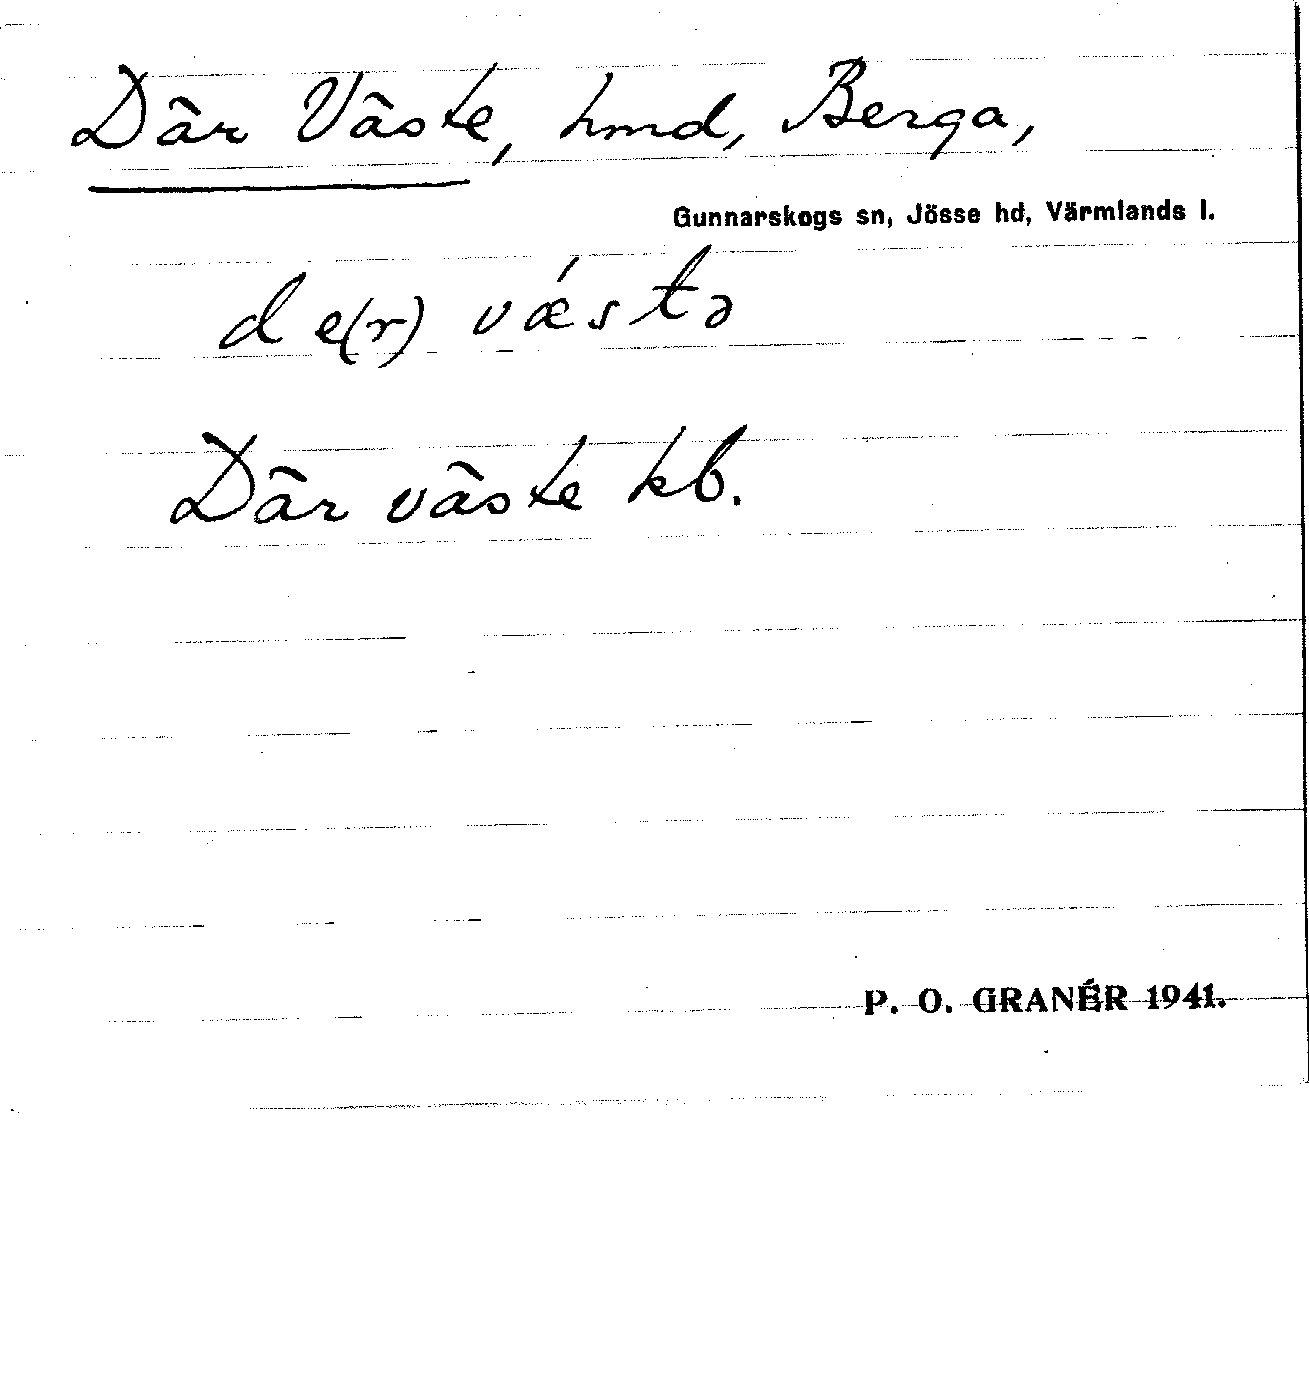 Där Väste, hmd, Berga,
Gunnarskogs sn, Jösse hd, Värmlands l.
de(r) vǽstə
Där väste kb.
P. O. GRANÉR 1941.